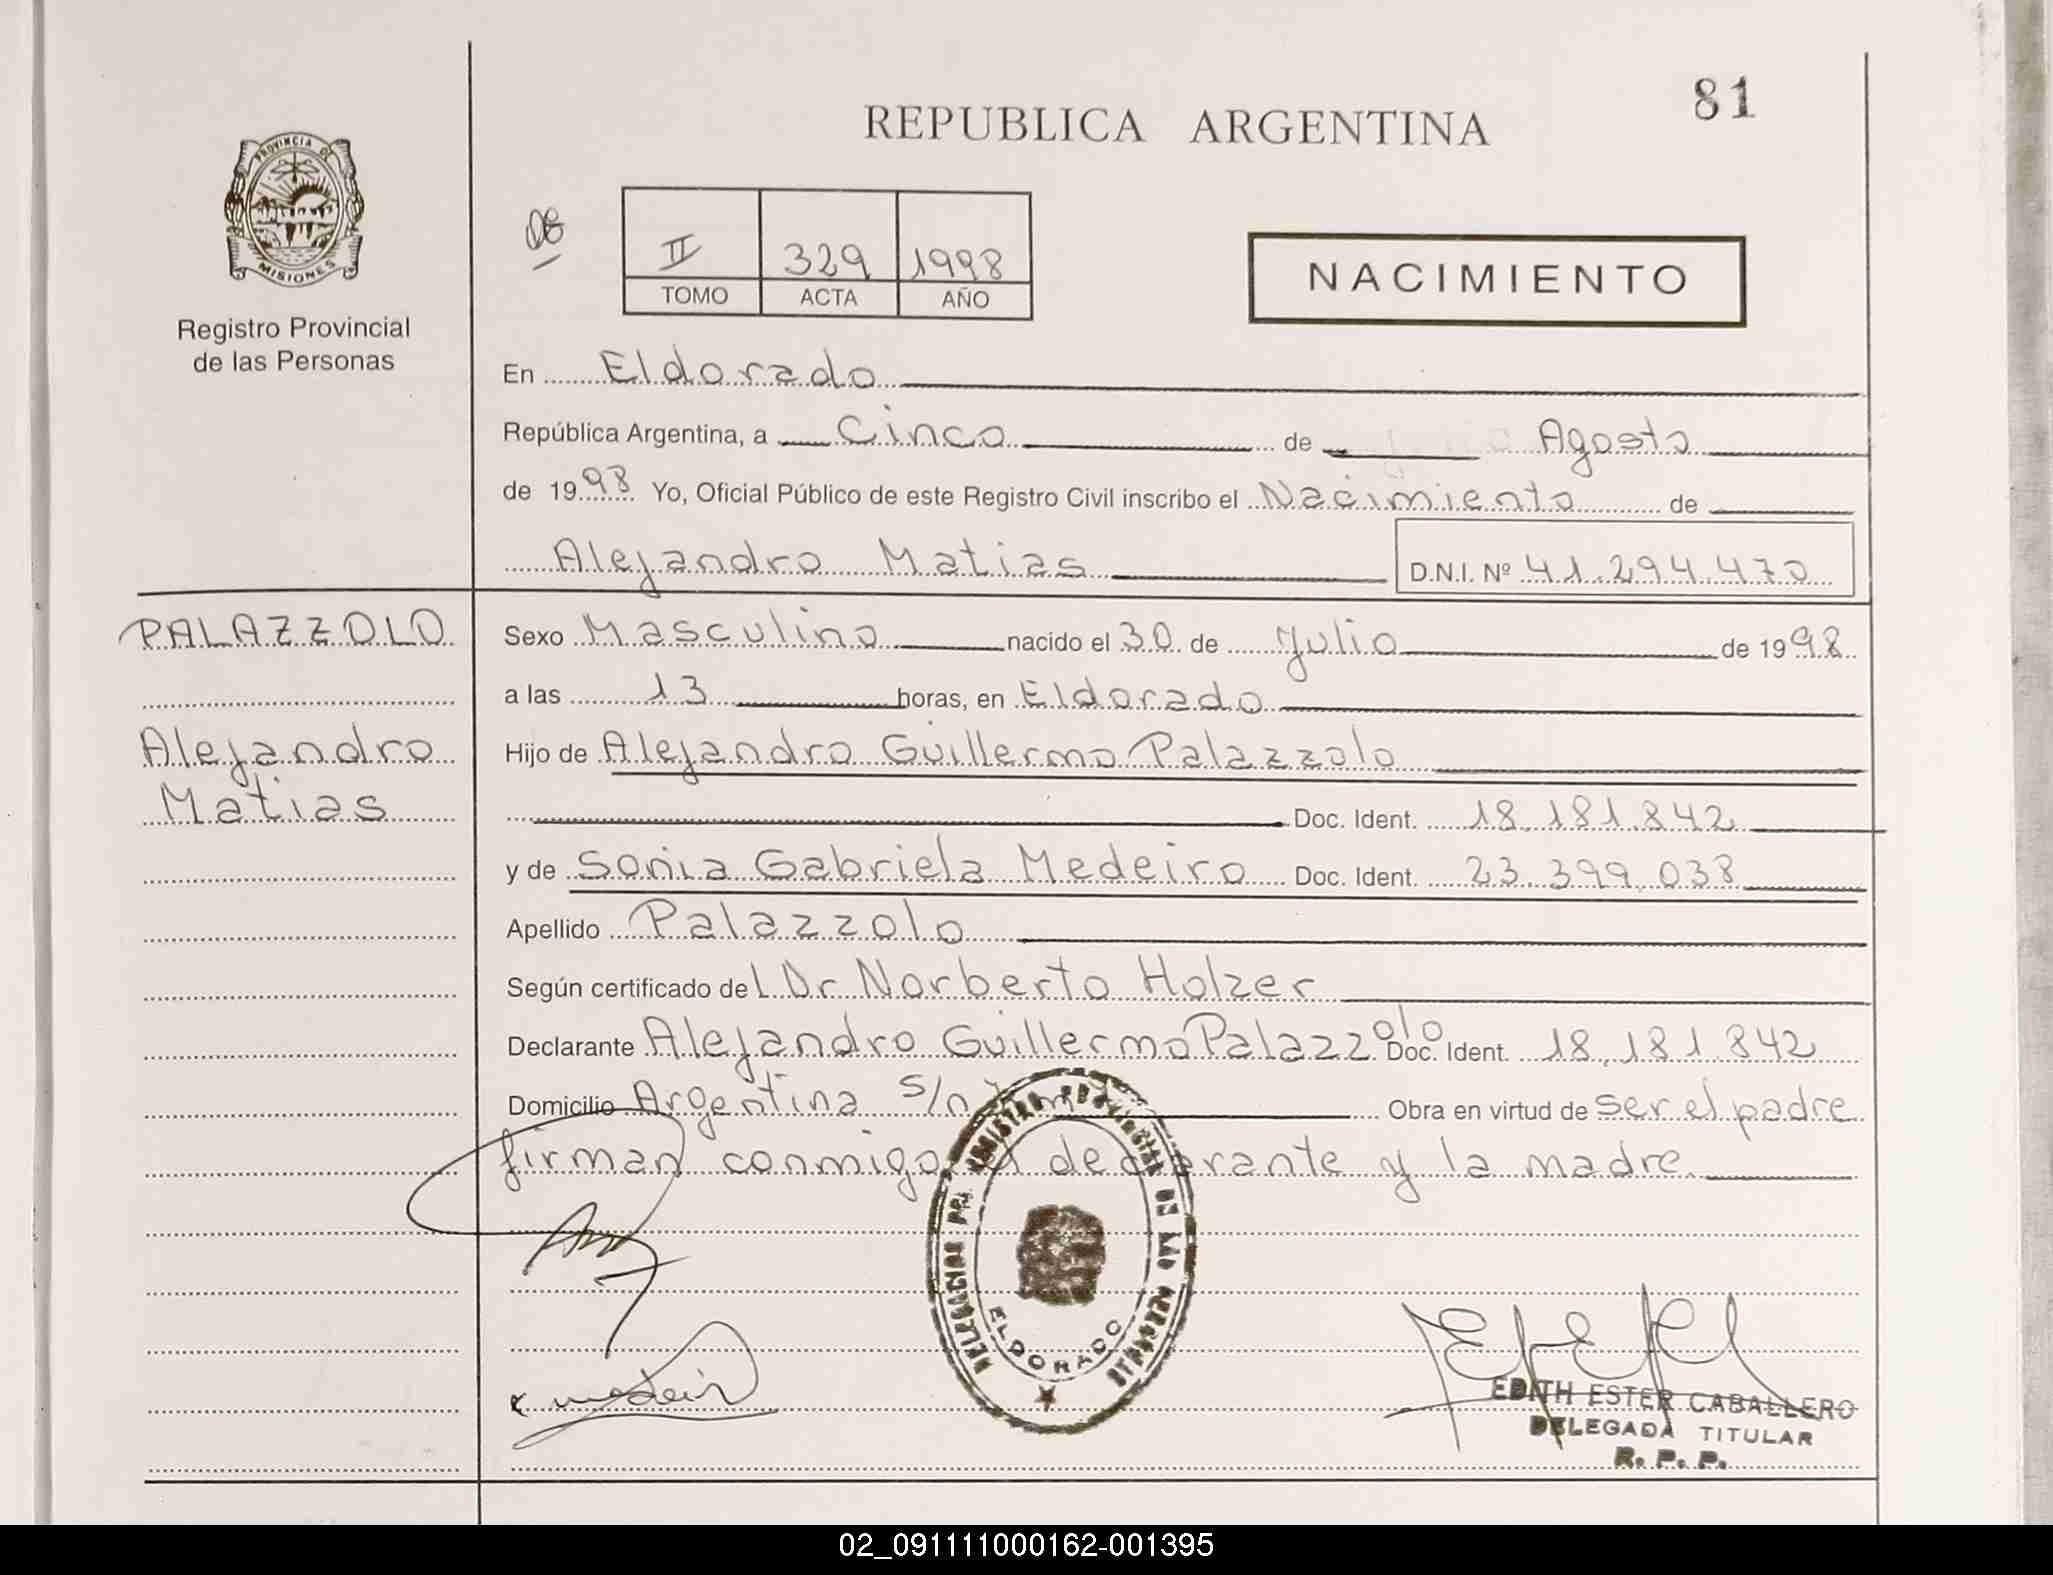 81
REPUBLICA ARGENTINA
PROVINCIA DE
MISIONES
Registro Provincial
de las Personas
II 329 1998
TOMO ACTA AÑO
NACIMIENTO
En Eldorado
República Argentina, a Cinco de Agosto
de 1998 Yo, Oficial Público de este Registro Civil inscribo el Nacimiento de
Alejandro Matias D.N.I. Nº 41.294.470
PALAZZOLO
Alejandro
Matias
Sexo Masculino nacido el 30 de Julio de 1998
a las 13 horas, en Eldorado
Hijo de Alejandro Guillermo Palazzolo
Doc. Ident. 18.181.842
y de Sonia Gabriela Medeiro Doc. Ident. 23.399.038
Apellido Palazzolo
Según certificado del Dr Norberto Holzer
Declarante Alejandro Guillermo Palazzolo Doc. Ident. 18.181.842
Domicilio Argentina s/n Obra en virtud de ser el padre
firman conmigo el declarante y la madre
ELDORADO
EDITH ESTER CABALLERO
DELEGADA TITULAR
R. P. P.
02_091111000162-001395